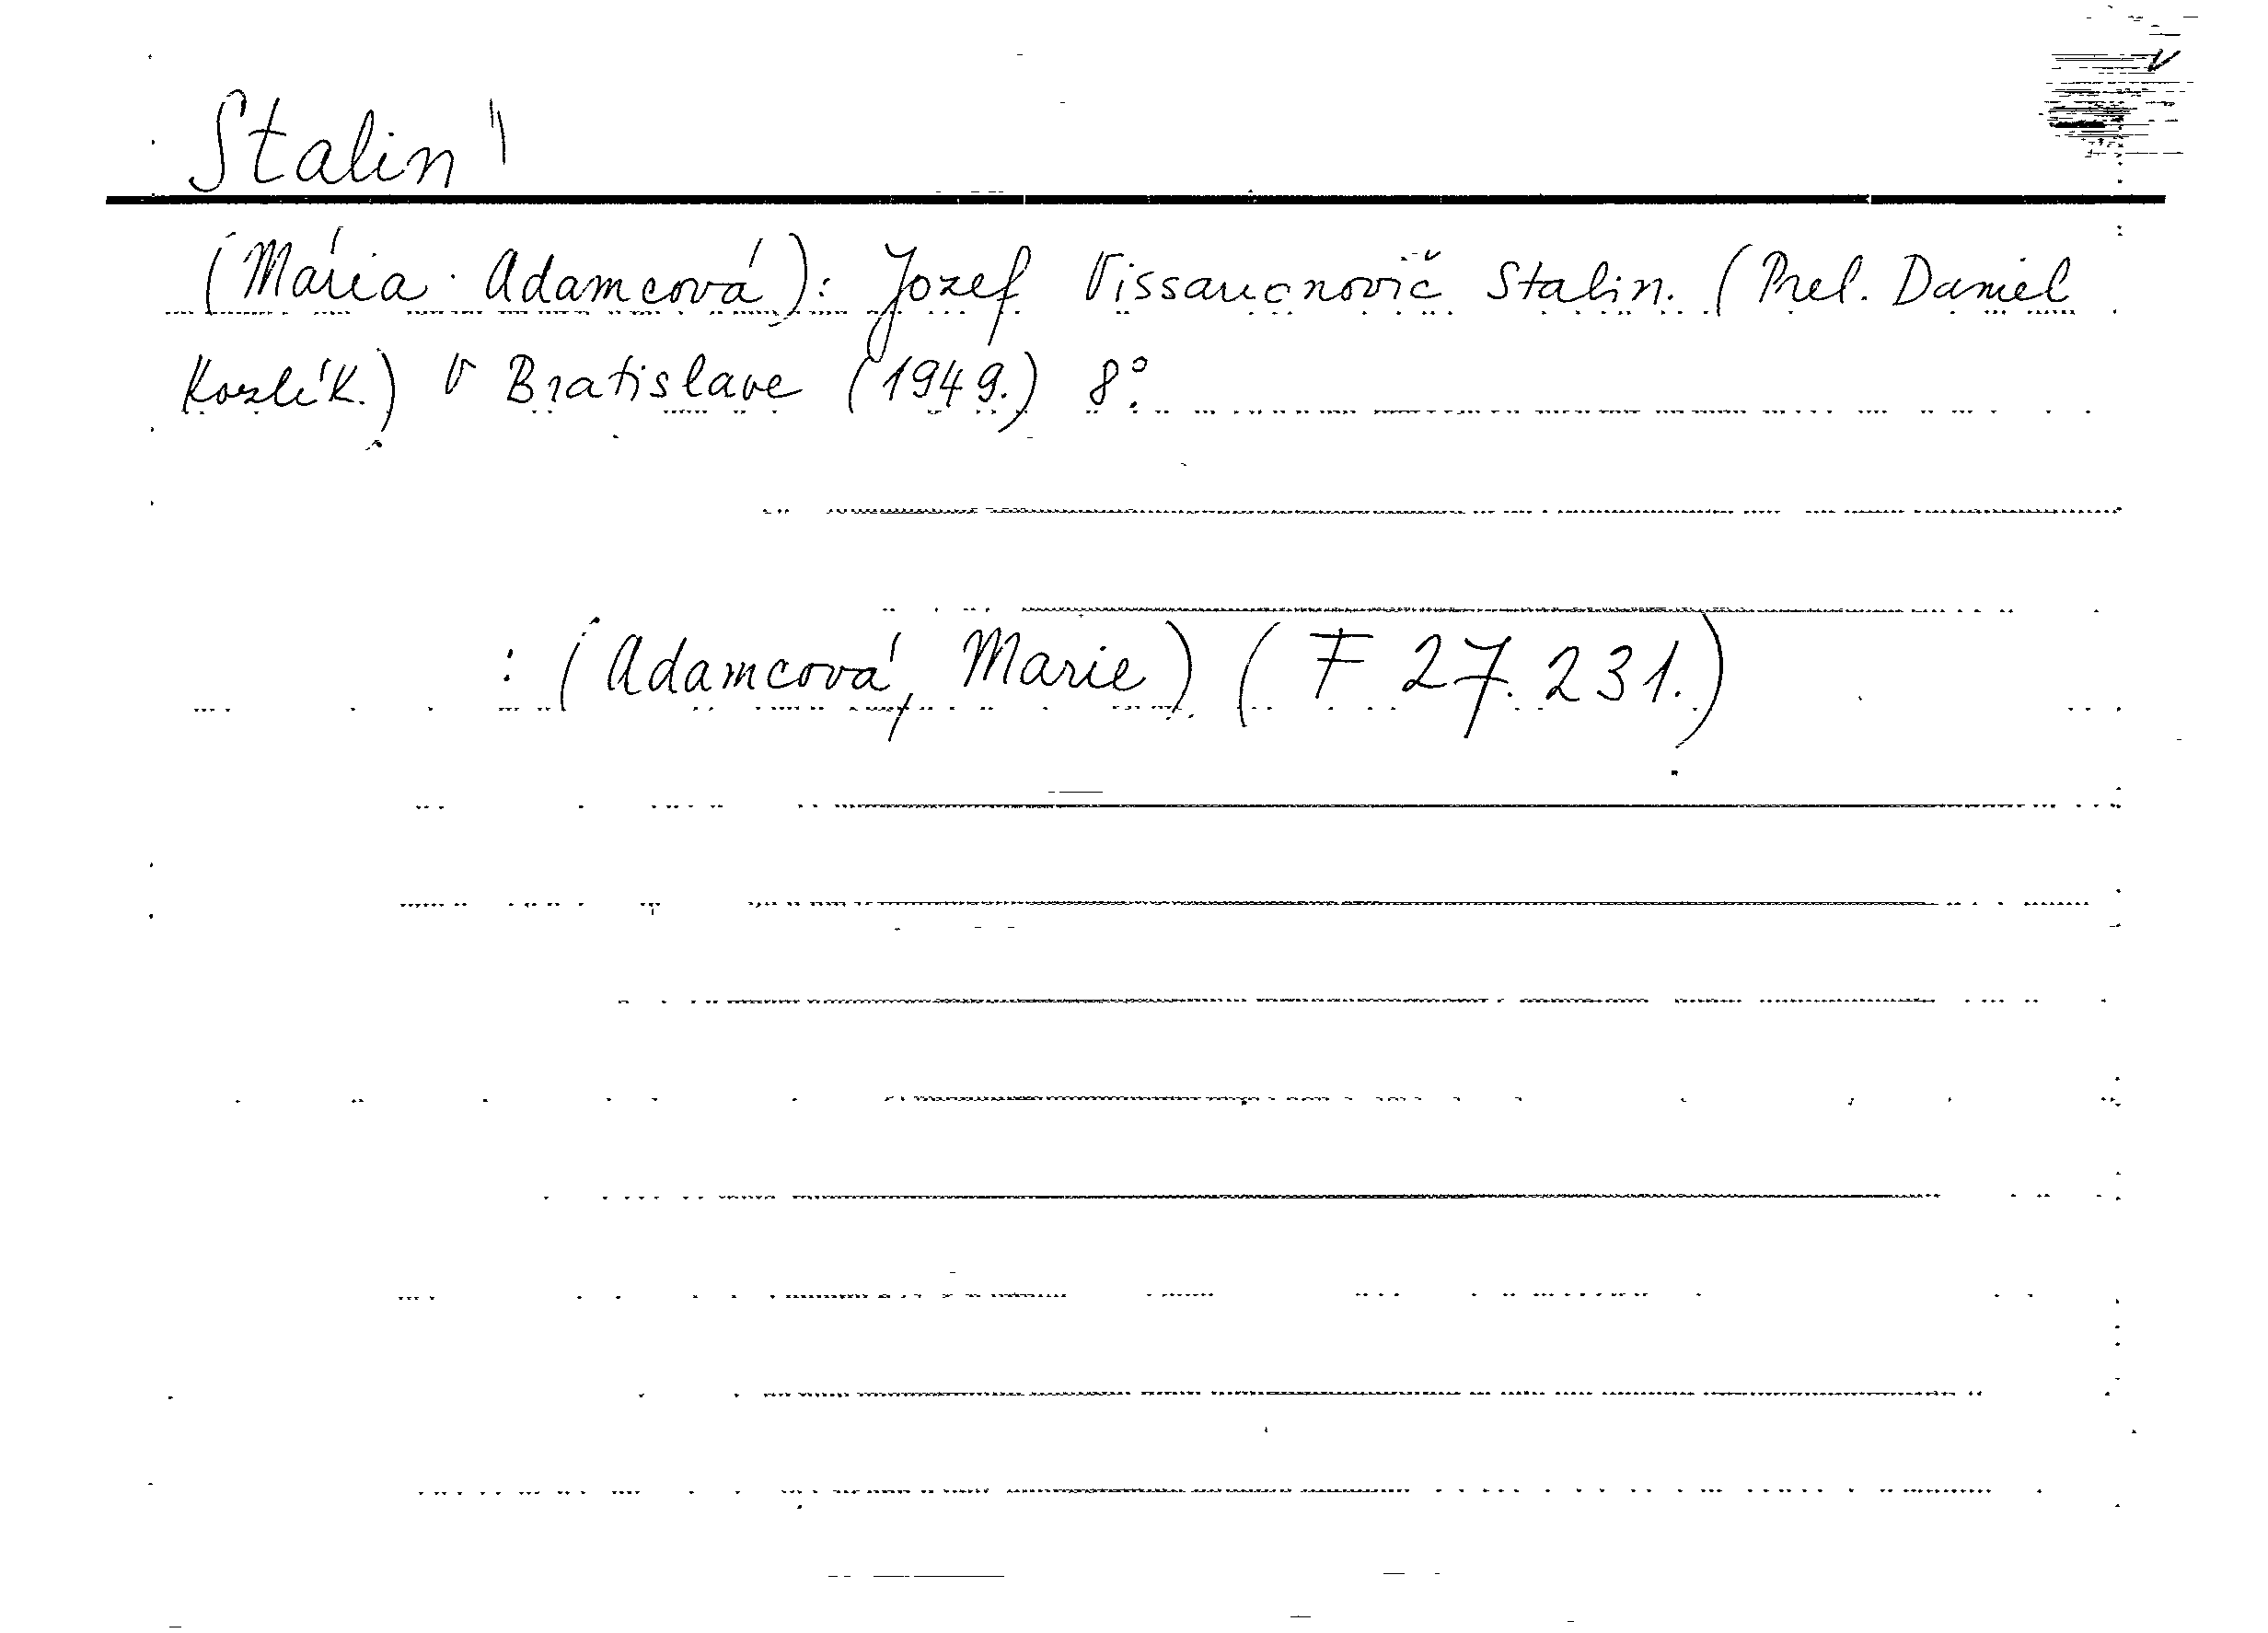 Stalin"
(Mária Adamcová): Jozef Vissarionovič Stalin. (Prel. Daniel
Kozlík.) V Bratislave (1949.) 8°.
: (Adamcová, Marie) (F 27.231.)